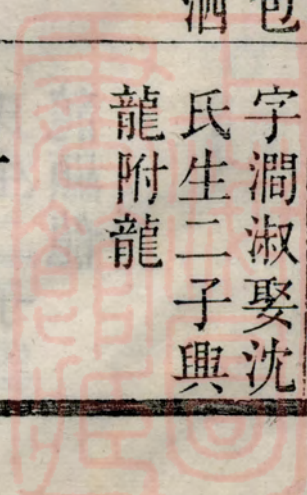 字澗淑娶沈
氏生二子興
龍附龍